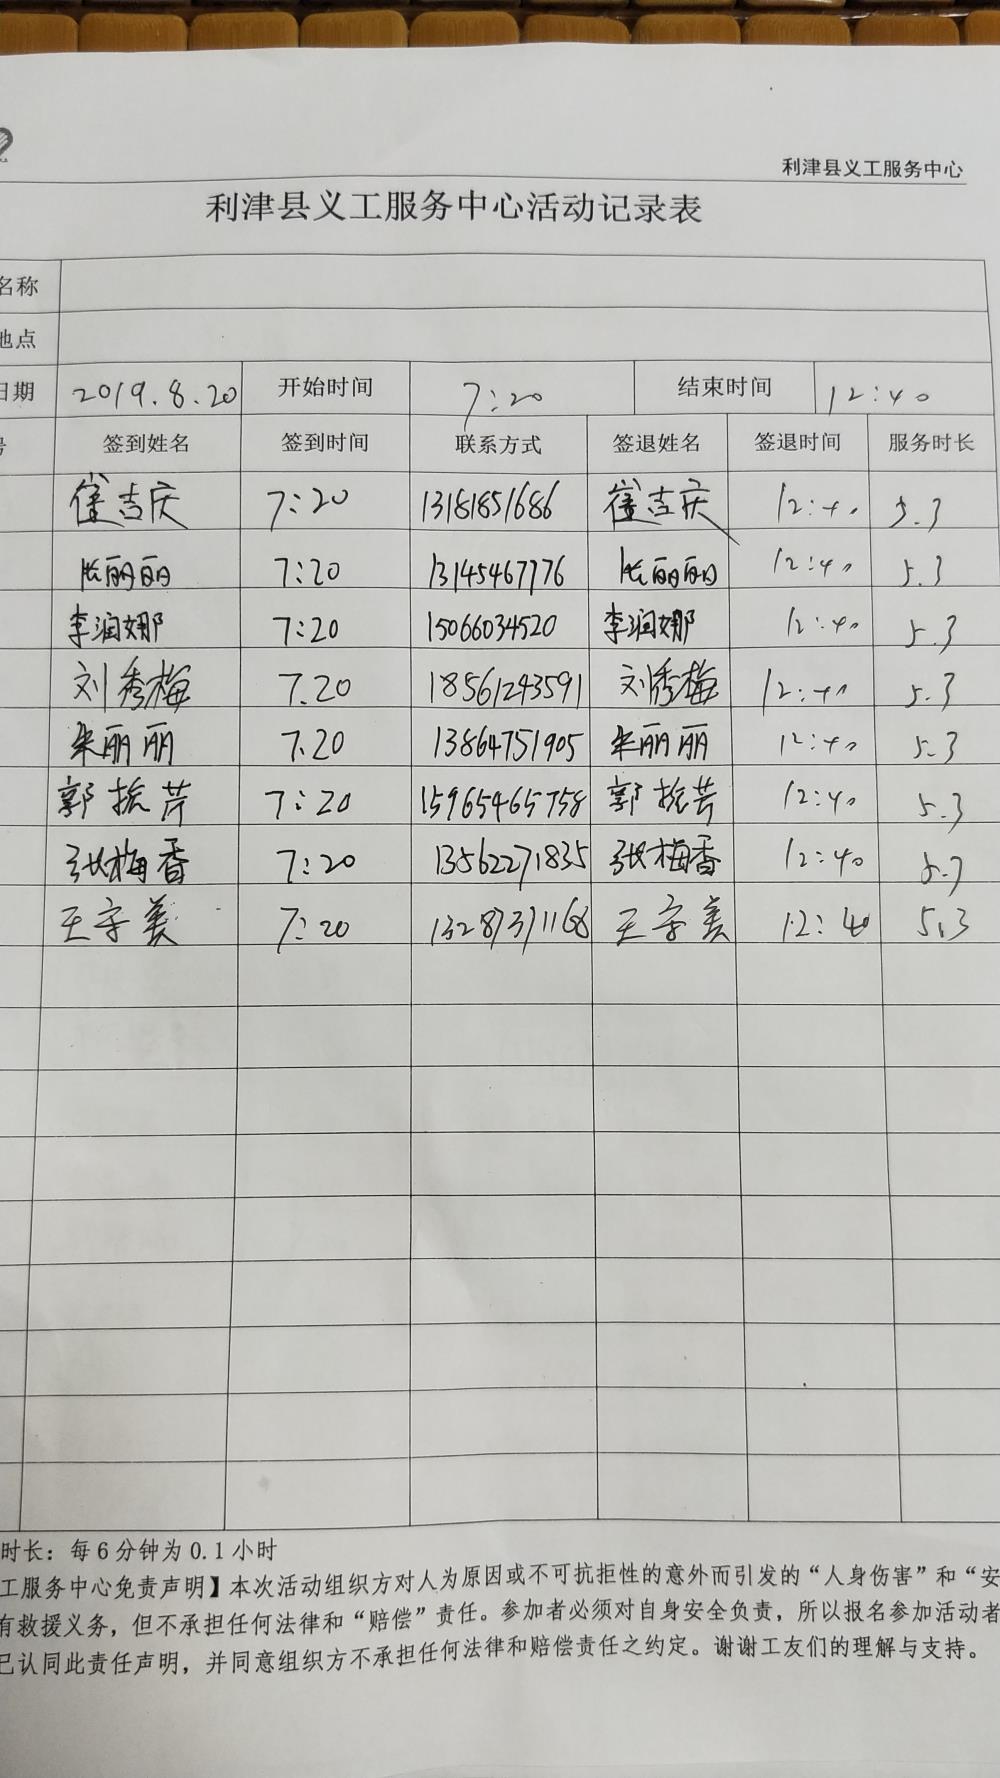 利津县义工服务中心
利津县义工服务中心活动记录表
名称
地点
日期 2019.8.20 开始时间 7:20 结束时间 12:40
号 签到姓名 签到时间 联系方式 签退姓名 签退时间 服务时长
崔吉庆 7:20 13181851686 崔吉庆 12:40 5.3
张丽丽 7:20 13145467776 张丽丽 12:40 5.3
李润娜 7:20 15066034520 李润娜 12:40 5.3
刘秀梅 7.20 18561243591 刘秀梅 12:40 5.3
朱丽丽 7.20 13864751905 朱丽丽 12:40 5.3
郭振芹 7:20 15965465758 郭振芹 12:40 5.3
张梅香 7:20 13562271835 张梅香 12:40 5.3
王守美 7:20 13287371168 王守美 12:40 5.3
时长：每6分钟为0.1小时
工服务中心免责声明】本次活动组织方对人为原因或不可抗拒性的意外而引发的“人身伤害”和“安
有救援义务，但不承担任何法律和“赔偿”责任。参加者必须对自身安全负责，所以报名参加活动者
已认同此责任声明，并同意组织方不承担任何法律和赔偿责任之约定。谢谢工友们的理解与支持。